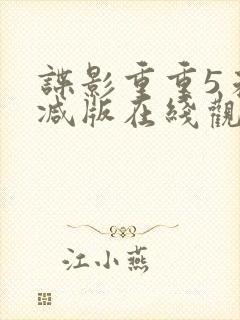 諜影重重5
减版在綫觀
江小燕